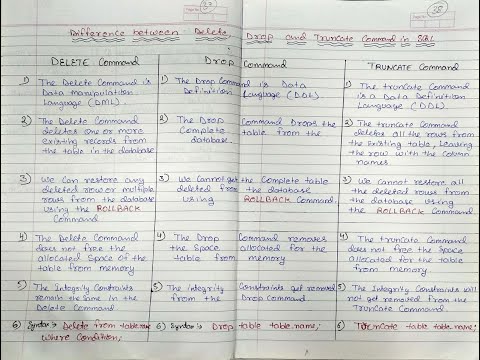 Difference between Delete, Drop and Truncate Command in SQL
DELETE Command
1) The Delete Command is
Data Manipulation
Language (DML).
2) The Delete Command
deletes one or more
existing records from
the table in the database.
3) We can restore any
deleted row or multiple
rows from the database
using the ROLLBACK
Command.
4) The Delete Command
does not free the
allocated Space of the
table from memory
5) The Integrity Constraints
remain the Same in the
Delete Command.
6) Syntax:- Delete from table name
where Condition;
Drop Command
1) The Drop Command is Data
Definition Language (DDL).
2) The Drop Command Drops the
Complete table from the
database.
3) We Cannot get the Complete table
deleted from the database
using ROLLBACK Command.
4) The Drop Command removes
the Space allocated for the
table from memory
5) The integrity Constraints get removed
from the Drop Command
6) Syntax:- Drop table table name;
TRUNCATE Command
1) The truncate Command
is a Data Definition
Language (DDL)
2) The truncate Command
deletes all the rows from
the existing table, leaving
the row with the column
names.
3) We Cannot restore all
the deleted rows from
the database using
the ROLLBACK Command
4) The truncate Command
does not free the Space
allocated for the table
from memory
5) The Integrity Constraints will
not get removed from the
Truncate Command.
6) Truncate table table name;